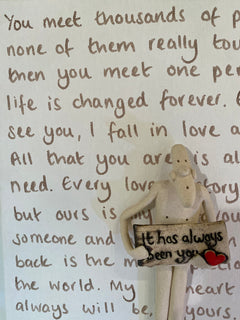 You meet thousands of p
none of them really tou
then you meet one per
life is changed forever.
see you, I fall in love a
All that you are is al
need. Every love story
but ours is my
someone and
back is the m
the world. My heart
always will be, yours.
It has always
been you